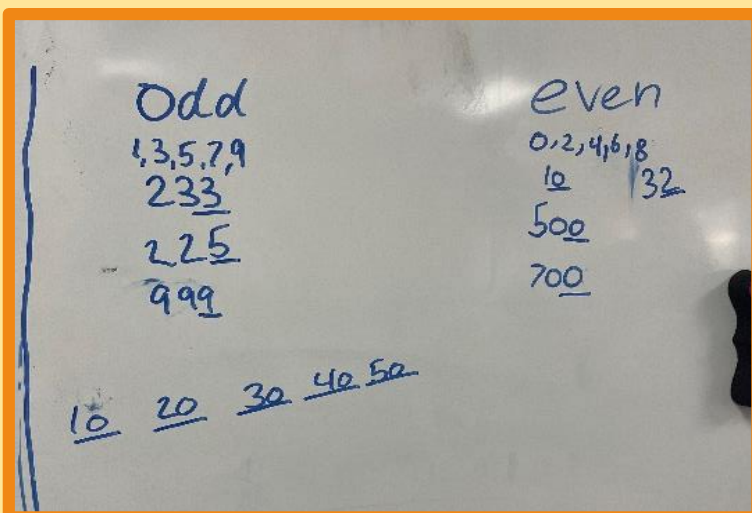 Odd
1,3,5,7,9
233
225
999
even
0,2,4,6,8
10 132
500
700
10 20 30 40 50